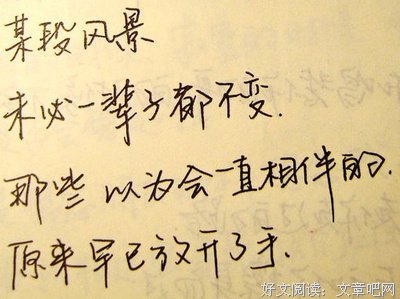 某段风景
未必一辈子都不变.
那些 以为会一直相伴的.
原来早已放开了手.
好文阅读：文章吧网